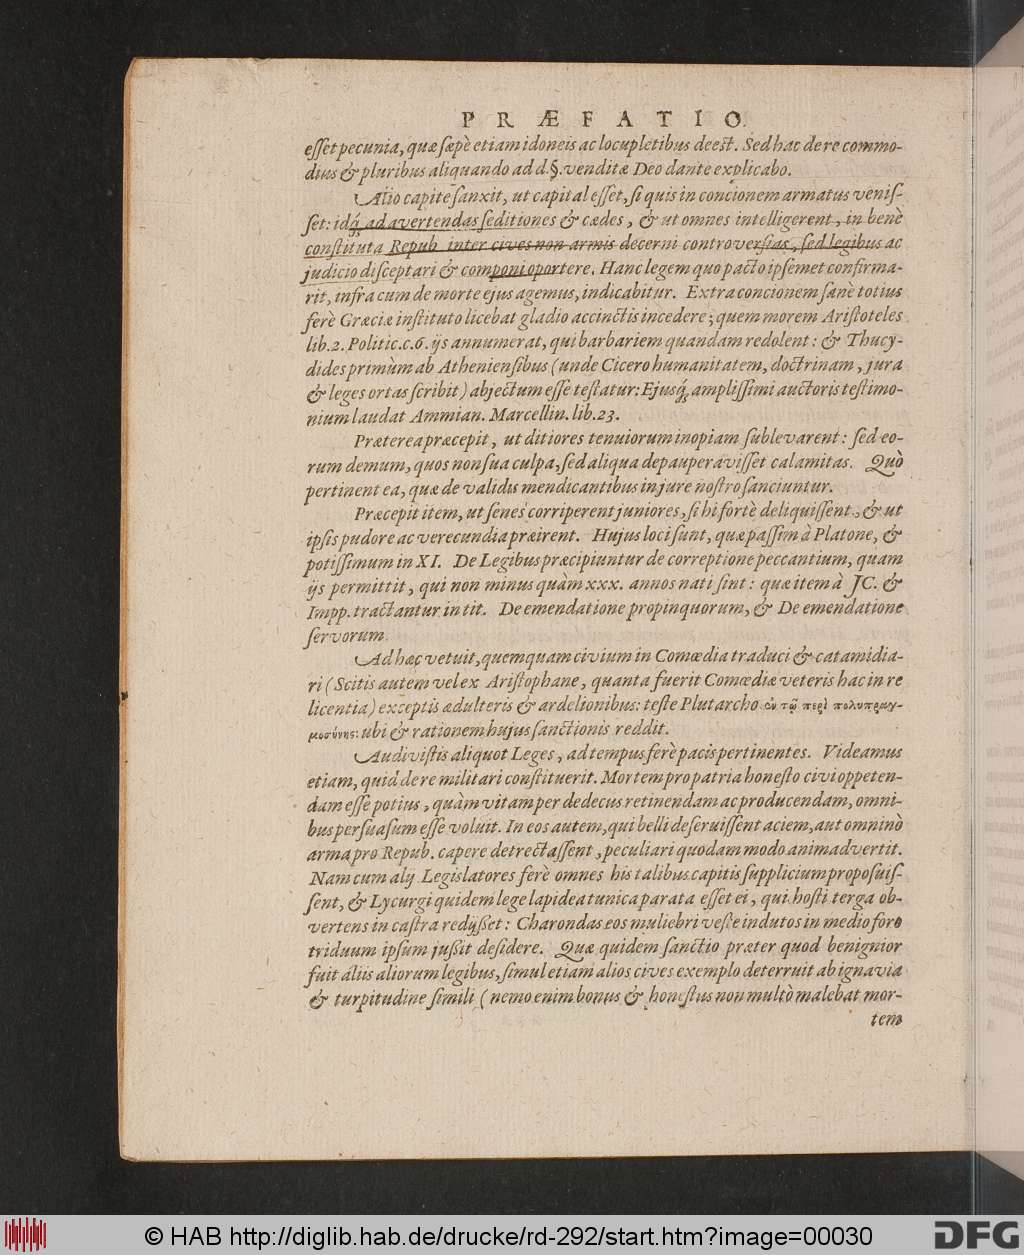 PRÆFATIO.
esset pecunia, quæ sæpè etiam idoneis ac locupletibus deest. Sed hac de re commo-
dius & pluribus aliquando ad d. §. venditæ Deo dante explicabo.
Alio capite sanxit, ut capital esset, si quis in concionem armatus venis-
set: idq́; ad avertendas seditiones & cædes, & ut omnes intelligerent, in benè
constituta Repub. inter cives non armis decerni controversias, sed legibus ac
judicio disceptari & componi oportere. Hanc legem quo pacto ipsemet confirma-
rit, infra cum de morte ejus agemus, indicabitur. Extra concionem sanè totius
ferè Græciæ instituto licebat gladio accinctis incedere; quem morem Aristoteles
lib. 2. Politic. c. 6. ijs annumerat, qui barbariem quandam redolent: & Thucy-
dides primùm ab Atheniensibus (unde Cicero humanitatem, doctrinam, jura
& leges ortas scribit) abjectum esse testatur: Ejusq́; amplissimi auctoris testimo-
nium laudat Ammian. Marcellin. lib. 23.
Præterea præcepit, ut ditiores tenuiorum inopiam sublevarent: sed eo-
rum demum, quos non sua culpa, sed aliqua depauperavisset calamitas. Quò
pertinent ea, quæ de validis mendicantibus in jure nostro sanciuntur.
Præcepit item, ut senes corriperent juniores, si hi fortè deliquissent, & ut
ipsis pudore ac verecundia præirent. Hujus loci sunt, quæ passim à Platone, &
potissimum in XI. De Legibus præcipiuntur de correptione peccantium, quam
ijs permittit, qui non minus quàm xxx. annos nati sint: quæ item à JC. &
Impp. tractantur in tit. De emendatione propinquorum, & De emendatione
servorum.
Ad hæc vetuit, quemquam civium in Comœdia traduci & catamidia-
ri (Scitis autem vel ex Aristophane, quanta fuerit Comœdiæ veteris hac in re
licentia) exceptis adulteris & ardelionibus: teste Plutarcho ἐν τῷ περὶ πολυπραγ-
μοσύνης: ubi & rationem hujus sanctionis reddit.
Audivistis aliquot Leges, ad tempus ferè pacis pertinentes. Videamus
etiam, quid de re militari constituerit. Mortem pro patria honesto civi oppeten-
dam esse potius, quàm vitam per dedecus retinendam ac producendam, omni-
bus persuasum esse voluit. In eos autem, qui belli deseruissent aciem, aut omninò
arma pro Repub. capere detrectassent, peculiari quodam modo animadvertit.
Nam cum alij Legislatores ferè omnes his talibus capitis supplicium proposuis-
sent, & Lycurgi quidem lege lapidea tunica parata esset ei, qui hosti terga ob-
vertens in castra redijsset: Charondas eos muliebri veste indutos in medio foro
triduum ipsum jussit desidere. Quæ quidem sanctio præter quod benignior
fuit aliis aliorum legibus, simul etiam alios cives exemplo deterruit ab ignavia
& turpitudine simili (nemo enim bonus & honestus non multò malebat mor-
tem
© HAB http://diglib.hab.de/drucke/rd-292/start.htm?image=00030
DFG